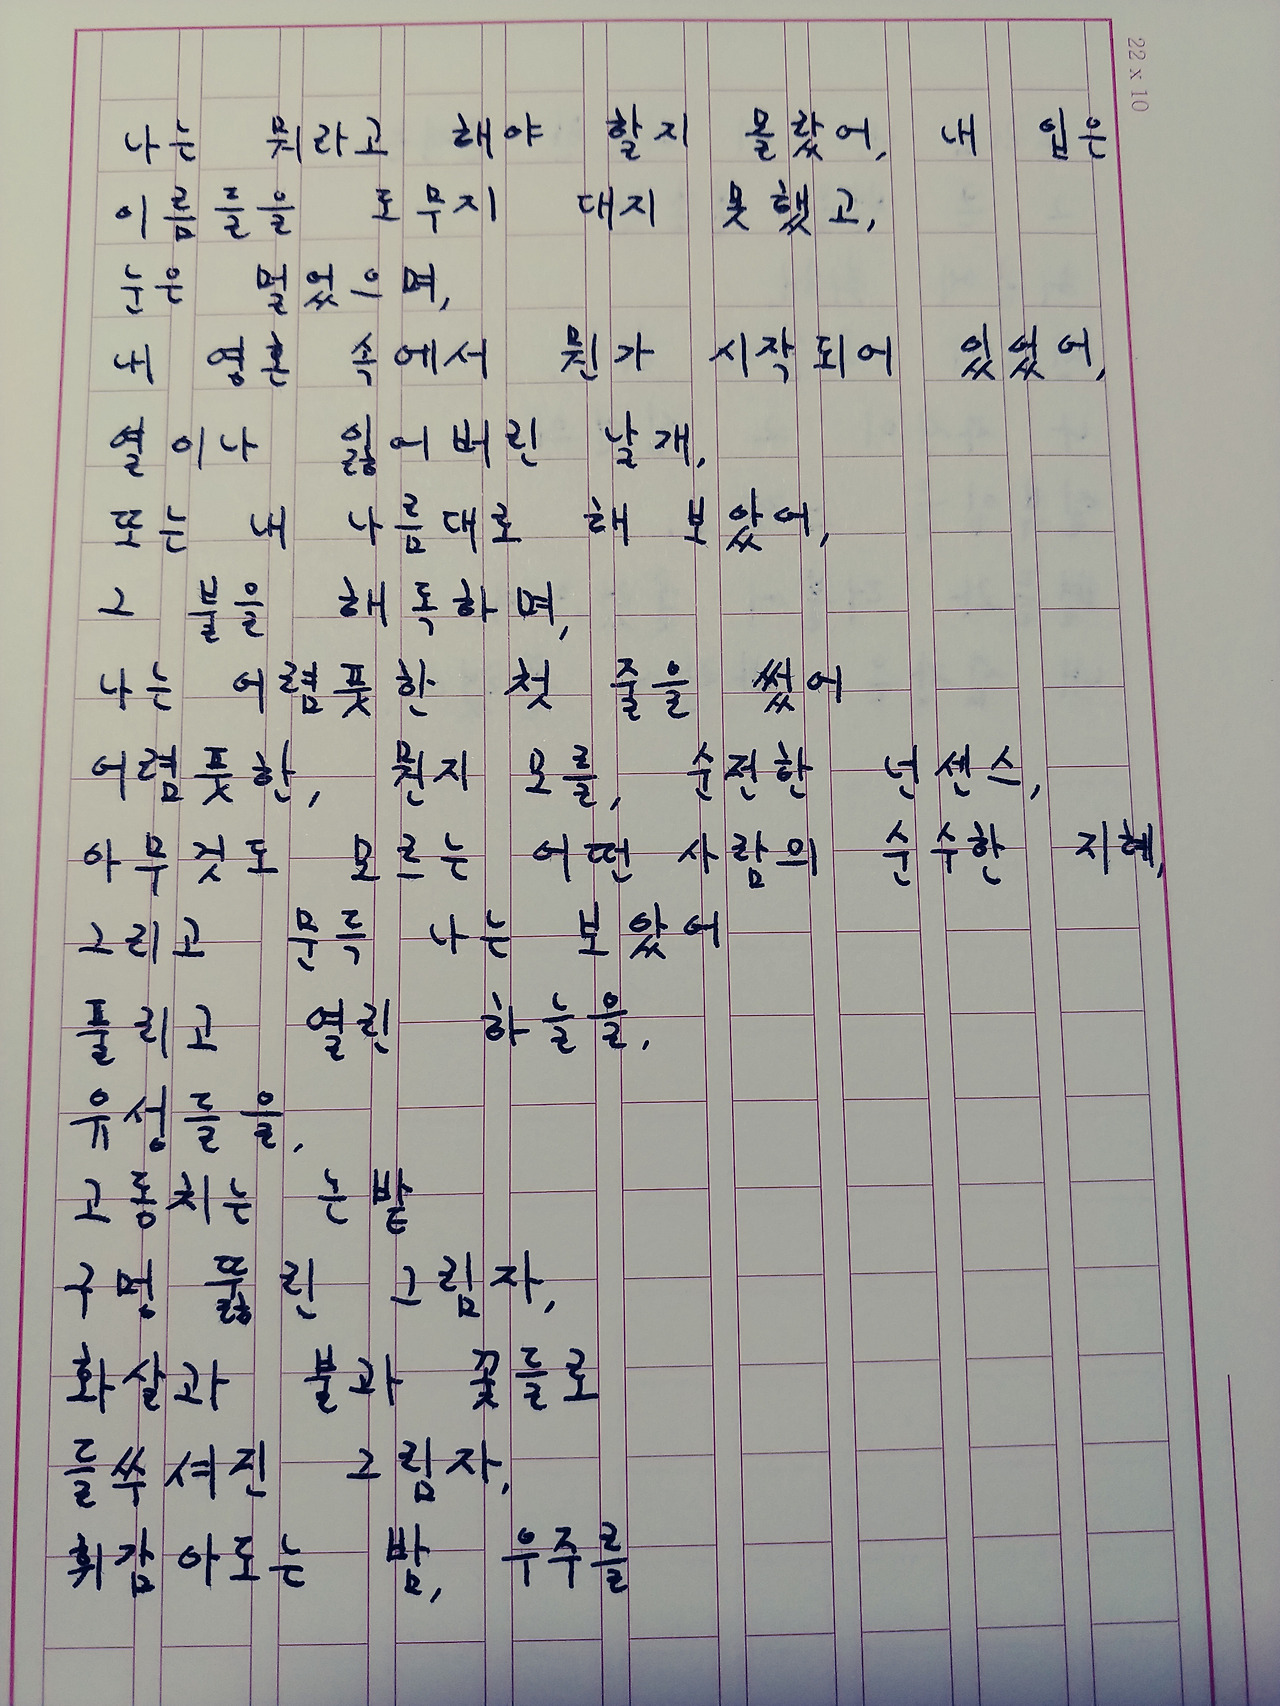 22 x 10
나는 뭐라고 해야 할지 몰랐어, 내 입은
이름들을 도무지 대지 못했고,
눈은 멀었으며,
내 영혼 속에서 뭔가 시작되어 있었어,
열이나 잃어버린 날개,
또는 내 나름대로 해 보았어,
그 불을 해독하며,
나는 어렴풋한 첫 줄을 썼어
어렴풋한, 뭔지 모를, 순전한 넌센스,
아무것도 모르는 어떤 사람의 순수한 지혜,
그리고 문득 나는 보았어
풀리고 열린 하늘을,
유성들을,
고동치는 논밭
구멍 뚫린 그림자,
화살과 불과 꽃들로
들쑤셔진 그림자,
휘감아도는 밤, 우주를